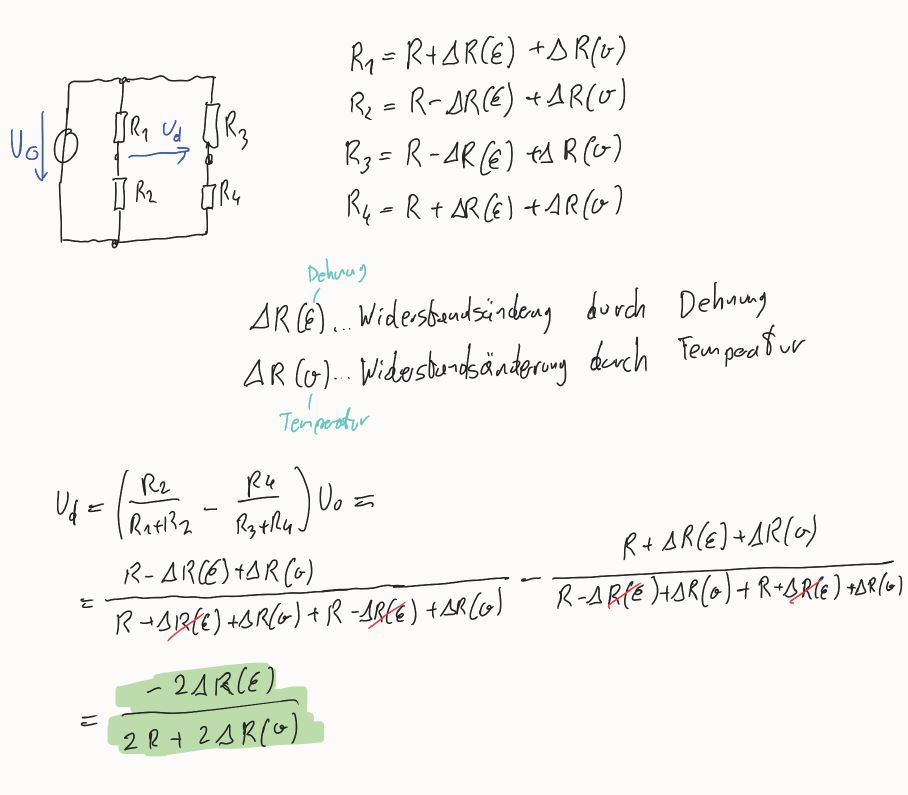 R₁ = R+ΔR(ε) +ΔR(υ)
R₂ = R-ΔR(ε) +ΔR(υ)
R₃ = R -ΔR(ε) +ΔR(υ)
R₄ = R + ΔR(ε) +ΔR(υ)
U₀
R₁
U_d
R₃
R₂
R₄
Dehnung
ΔR(ε)... Widerstandsänderung durch Dehnung
ΔR(υ)... Widerstandsänderung durch Temperatur
Temperatur
U_d = (R₂/(R₁+R₂) - R₄/(R₃+R₄)) U₀ =
= (R-ΔR(ε)+ΔR(υ))/(R+ΔR(ε)+ΔR(υ)+R-ΔR(ε)+ΔR(υ)) - (R+ΔR(ε)+ΔR(υ))/(R-ΔR(ε)+ΔR(υ)+R+ΔR(ε)+ΔR(υ))
= (-2ΔR(ε))/(2R+2ΔR(υ))